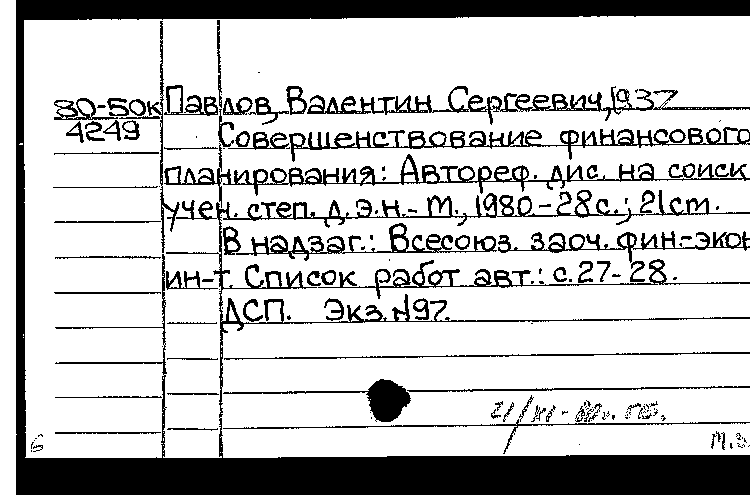 80-50к Павлов, Валентин Сергеевич, 1937
4249 Совершенствование финансового
планирования: Автореф. дис. на соиск
учен. степ. д.э.н.- М., 1980.-28с.; 21см.
В надзаг.: Всесоюз. заоч. фин.-экон
ин-т. Список работ авт.: с.27-28.
ДСП. Экз. №97.
21/XI-80г.
6 М.